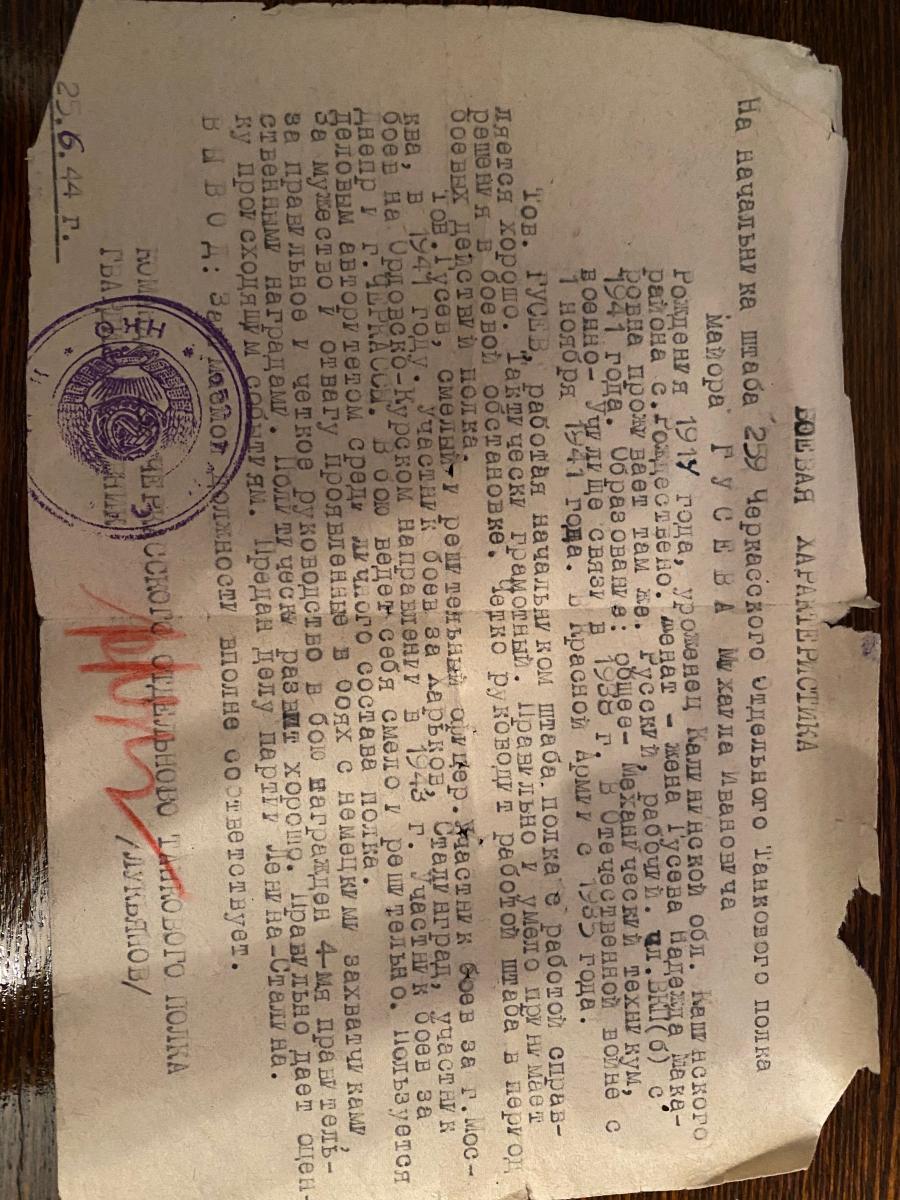 БОЕВАЯ ХАРАКТЕРИСТИКА
На начальника штаба 259 Черкасского Отдельного Танкового полка
майора ГУСЕВА Михаила Ивановича
Рождения 1914 года, уроженец Калининской обл. Кашинского
района с.Рождествено. Женат - жена Гусева Надежда Мака-
ровна проживает там же. Русский, рабочий. чл.ВКП(б) с
1941 года. Образование: общее- Механический техникум,
военно- училище связи в 1938 г. В Отечественной войне с
1 ноября 1941 года. В Красной Армии с 1935 года.
Тов. ГУСЕВ, работая начальником штаба полка с работой справ-
ляется хорошо. Тактически грамотный. Правильно и умело принимает
решения в боевой обстановке. Четко руководит работой штаба в период
боевых действий полка.
Тов.Гусев, смелый и решительный офицер. Участник боев за г.Мос-
ква, в 1941 году. участник боев за Харьков, Сталинград, участник
боев на Орловско-Курском направлении в 1943 г. участник боев за
Днепр и г.ЧЕРКАССЫ. В бою ведет себя смело и решительно. Пользуется
деловым авторитетом среди личного состава полка.
За мужество и отвагу проявленные в боях с немецкими захватчиками,
за правильное и четкое руководство в бою награжден 4-мя правитель-
ственными наградами. Политически развит хорошо. Правильно дает оцен-
ку происходящим событиям. Предан делу партии Ленина-Сталина.
ВЫВОД: Занимаемой должности вполне соответствует.
ОТДЕЛЬНОВО ТАНКОВОГО ПОЛКА
/ЛУКЬЯНОВ/
25.6.44 г.